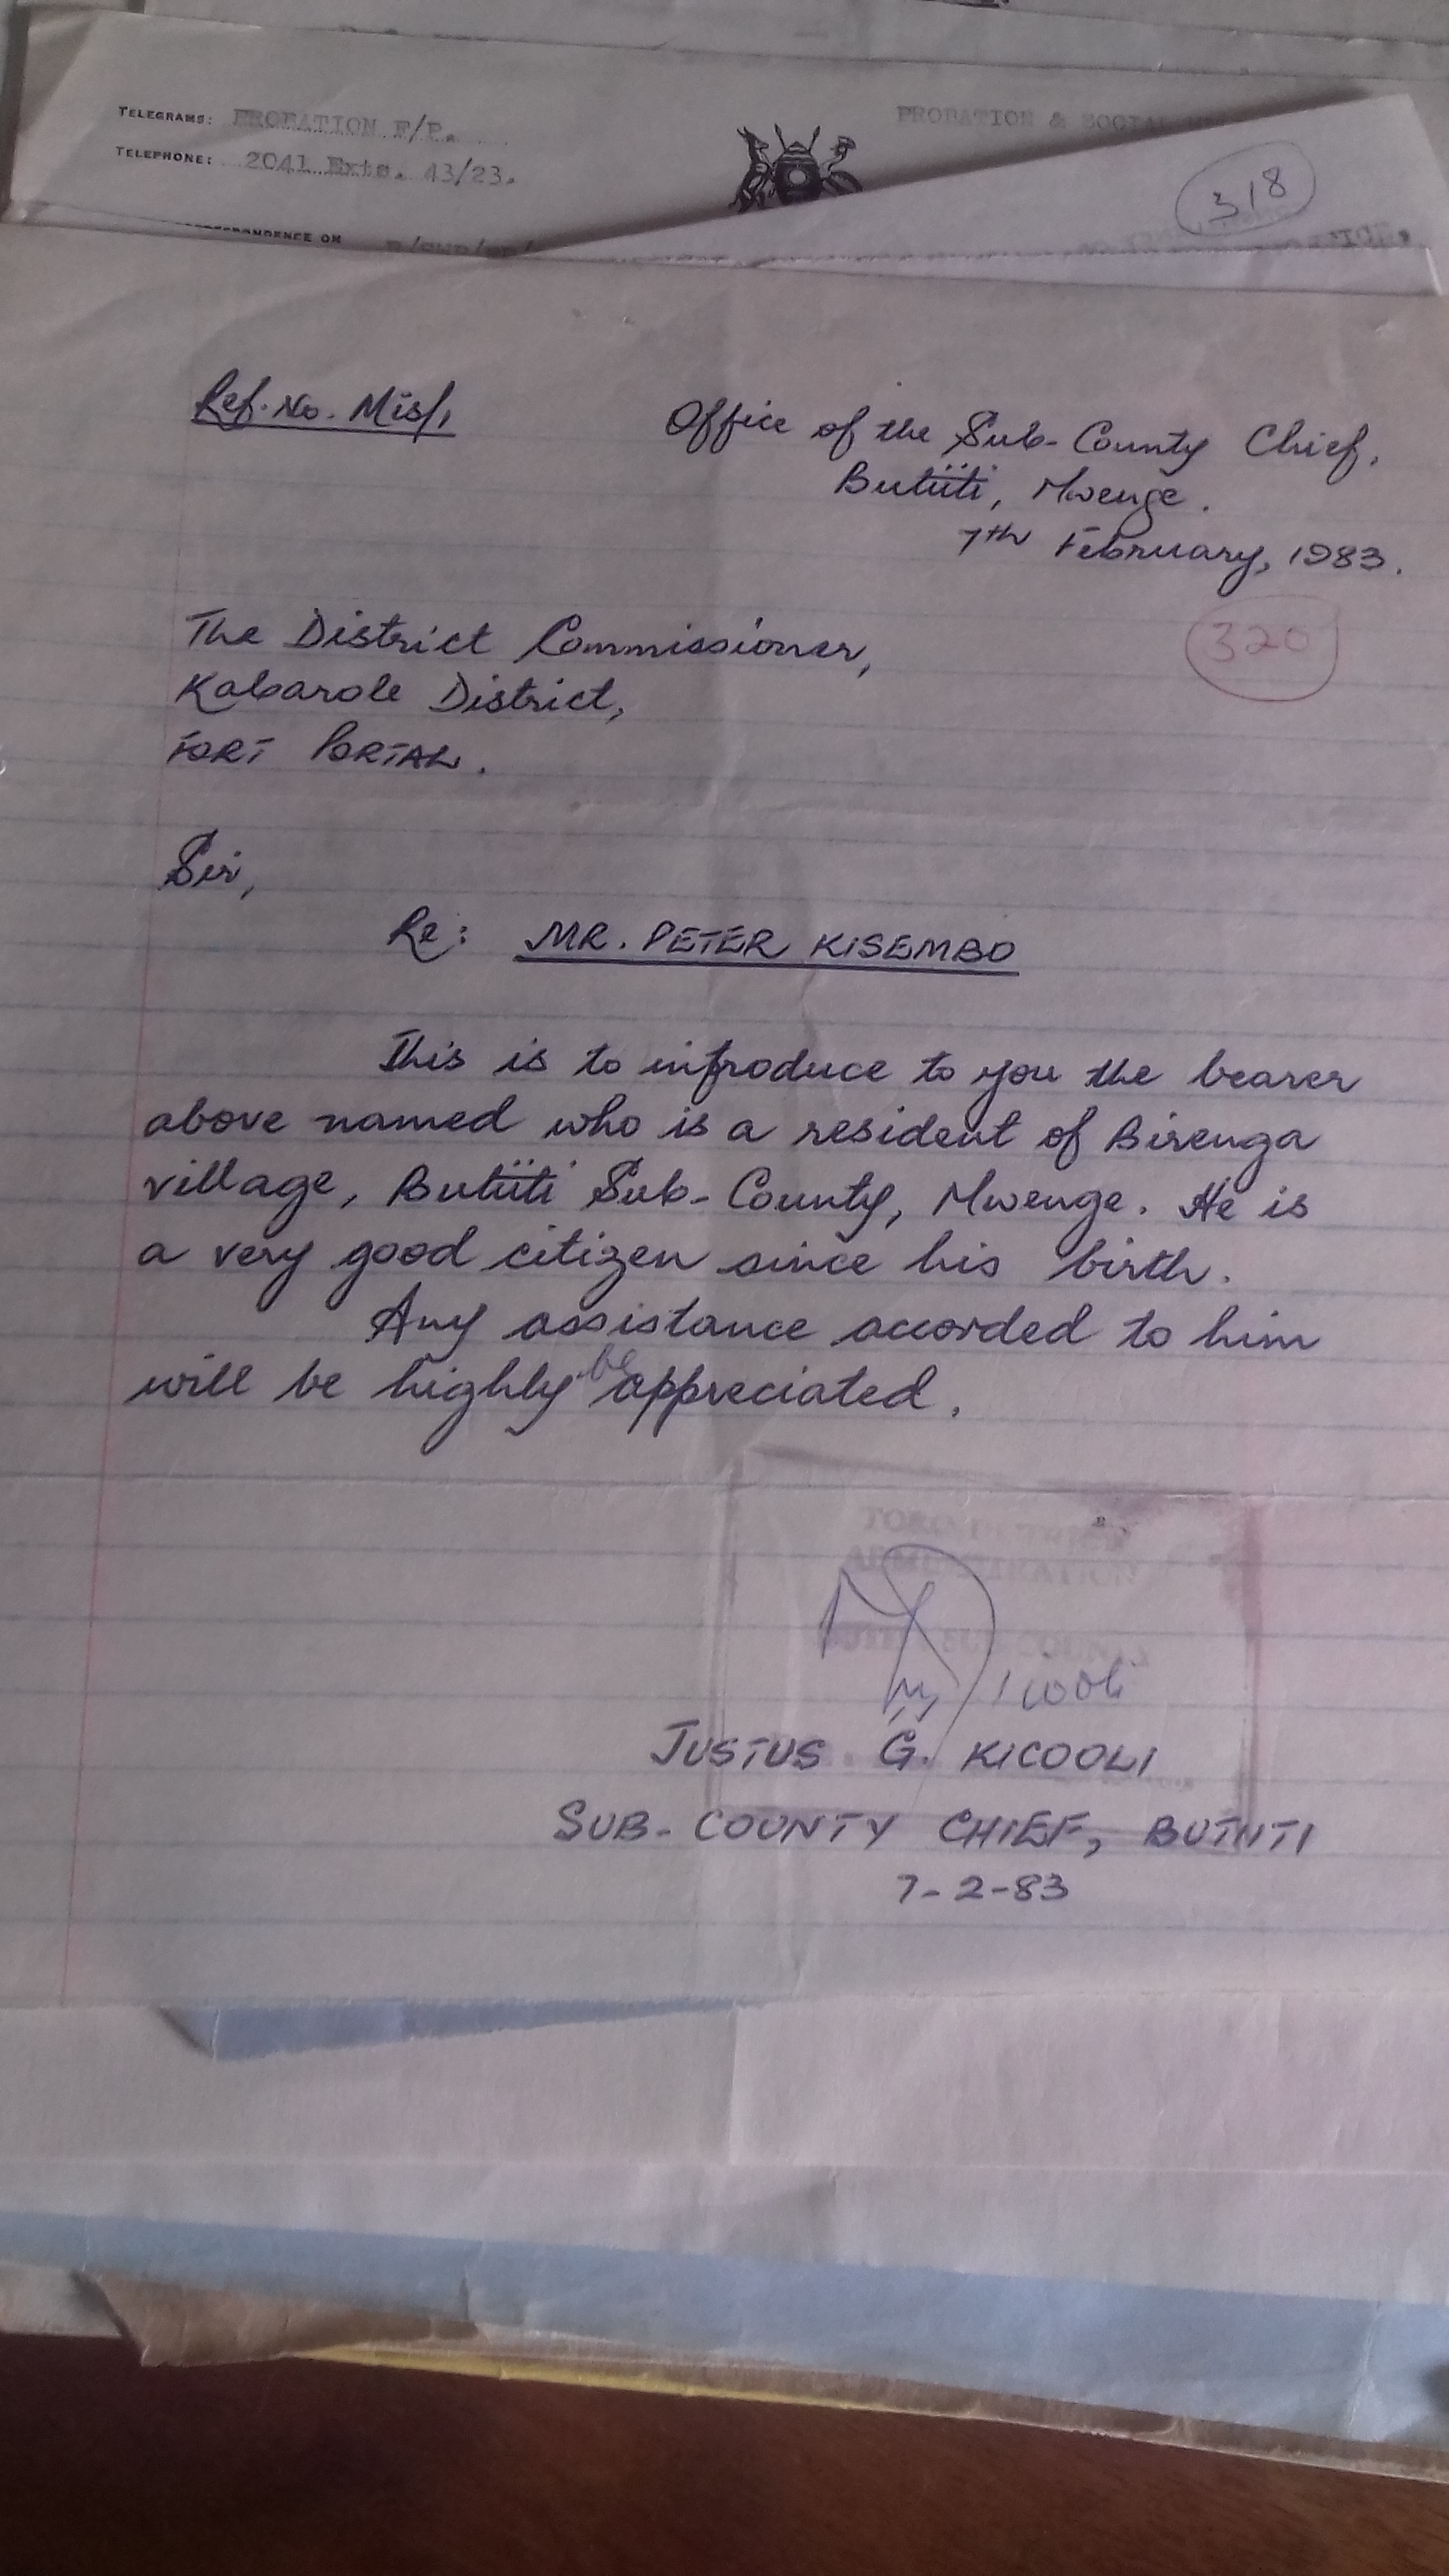 TELEGRAMS: PROBATION F/P.
TELEPHONE: 2041 Exts. 43/23.
PROBATION & SOCIAL
318
Ref. No. Mis/1
Office of the Sub-County Chief,
Butiiti, Mwenge.
7th February, 1983.
320
The District Commissioner,
Kabarole District,
FORT PORTAL.
Sir,
Re: MR. PETER KISEMBO
This is to introduce to you the bearer
above named who is a resident of Birenga
village, Butiiti Sub-County, Mwenge. He is
a very good citizen since his birth.
Any assistance accorded to him
will be highly be appreciated.
TORO DISTRICT
ADMINISTRATION
SUB COUNTY
JUSTUS G. KICOOLI
SUB-COUNTY CHIEF, BUTIITI
7-2-83